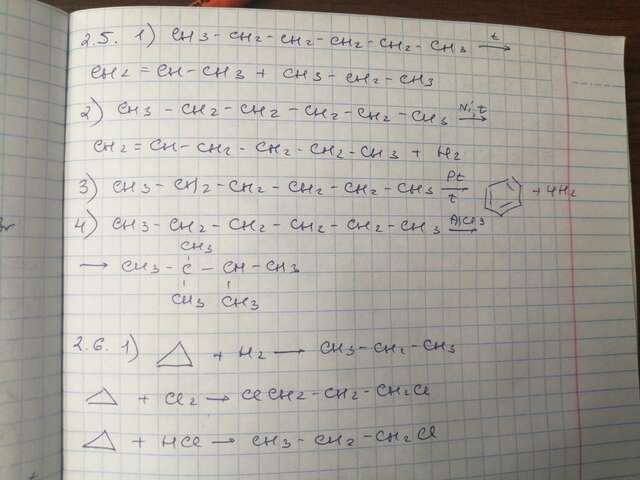 2.5. 1) CH3 - CH2 - CH2 - CH2 - CH2 - CH3 t→
CH2 = CH - CH3 + CH3 - CH2 - CH3
2) CH3 - CH2 - CH2 - CH2 - CH2 - CH3 Ni, t→
CH2 = CH - CH2 - CH2 - CH2 - CH3 + H2
3) CH3 - CH2 - CH2 - CH2 - CH2 - CH3 Pt t + 4H2
4) CH3 - CH2 - CH2 - CH2 - CH2 - CH3 AlCl3
CH3
→ CH3 - C - CH - CH3
CH3 CH3
2.6. 1) + H2 → CH3 - CH2 - CH3
+ Cl2 → ClCH2 - CH2 - CH2Cl
+ HCl → CH3 - CH2 - CH2Cl